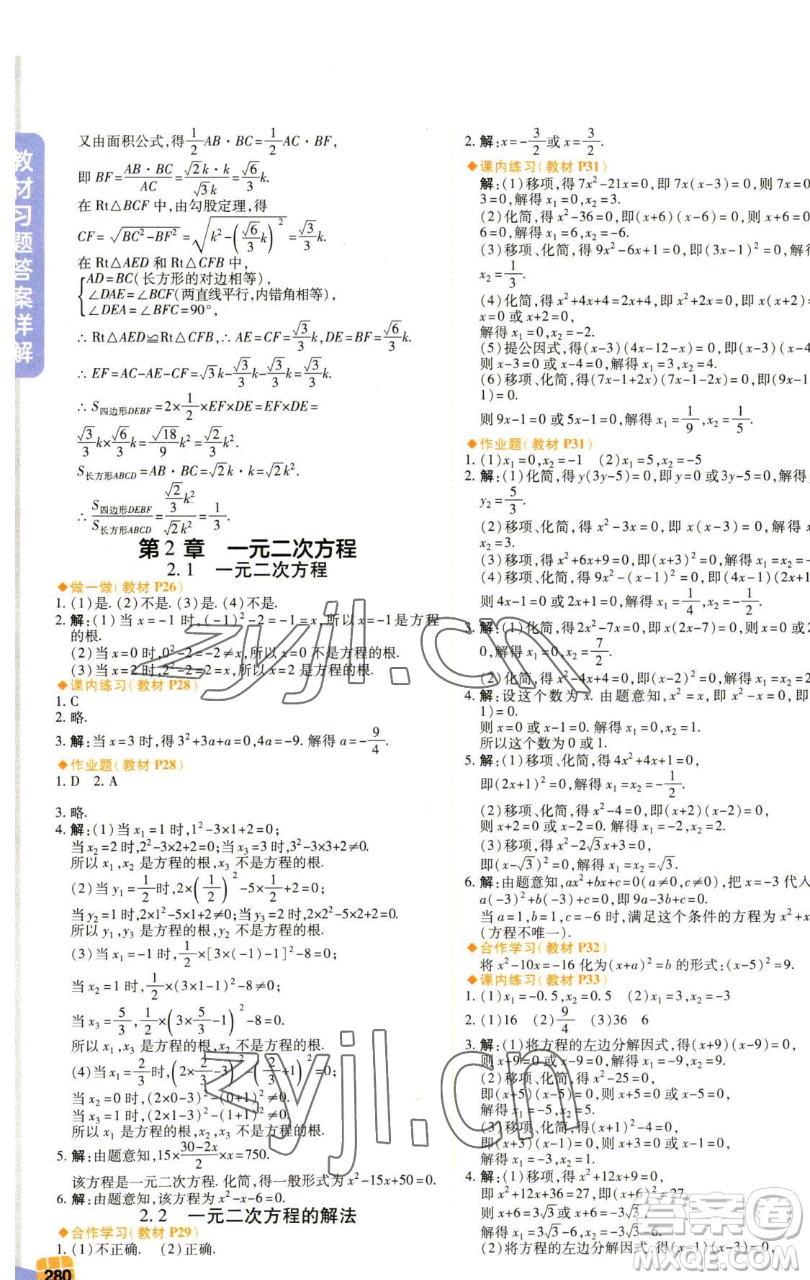 教材习题答案详解
又由面积公式,得1/2 AB·BC=1/2 AC·BF,
即 BF=AB·BC/AC=√2k·k/√3k=√6/3 k.
在 Rt△BCF 中,由勾股定理,得
CF=√(BC²-BF²)=√(k²-(√6/3 k)²)=√3/3 k.
在 Rt△AED 和 Rt△CFB 中,
{AD=BC(长方形的对边相等),
∠DAE=∠BCF(两直线平行,内错角相等),
∠DEA=∠BFC=90°,
∴ Rt△AED≌Rt△CFB,∴AE=CF=√3/3 k,DE=BF=√6/3 k.
∴ EF=AC-AE-CF=√3k-√3/3 k-√3/3 k=√3/3 k.
∴ S四边形DEBF=2×1/2×EF×DE=EF×DE=
√3/3 k×√6/3 k=√18/9 k²=√2/3 k².
S长方形ABCD=AB·BC=√2k·k=√2k².
∴ S四边形DEBF/S长方形ABCD=(√2/3 k²)/(√2k²)=1/3.
第 2 章 一元二次方程
2.1 一元二次方程
◆做一做(教材 P26)
1. (1)是. (2)不是. (3)是. (4)不是.
2. 解:(1)当 x=-1 时,(-1)²-2=-1=x,所以 x=-1是方程
的根.
(2)当 x=0 时,0²-2=-2≠x,所以 x=0 不是方程的根.
(3)当 x=2 时,2²-2=2=x,所以 x=2 是方程的根.
◆课内练习(教材 P28)
1. C
2. 略.
3. 解:当 x=3 时,得 3²+3a+a=0,4a=-9. 解得 a=-9/4.
◆作业题(教材 P28)
1. D 2. A
3. 略.
4. 解:(1)当 x₁=1 时,1²-3×1+2=0;
当 x₂=2 时,2²-3×2+2=0.
所以 x₁,x₂ 是方程的根.
(2)当 y₁=1/2 时,2×(1/2)²-1/2=0;
当 y₂=1 时,2×1²-5×1≠0.
所以 y₁ 是方程的根,y₂ 不是方程的根.
(3)当 x₁=1 时,1/2×[3×(-1)-1]²-8=0;
当 x₂=1 时,1/2×(3×1-1)²-8≠0;
当 x₃=5/3 时,1/2×(3×5/3-1)²-8=0.
所以 x₁,x₃ 是方程的根,x₂ 不是方程的根.
(4)当 x₁=2/3 时,(2×2/3-3)²-(2/3+1)²=0;
当 x₂=0 时,(2×0-3)²-(0+1)²≠0;
当 x₃=1 时,(2×1-3)²-(1+1)²≠0.
所以 x₁ 是方程的根,x₂,x₃ 不是方程的根.
5. 解:由题意知,15×(30-2x)/2×x=750.
该方程是一元二次方程. 化简,得一般形式为 x²-15x+50=0.
6. 解:由题意知,该方程为 x²-x-6=0.
2.2 一元二次方程的解法
◆合作学习(教材 P29)
1. (1)不正确. (2)正确.
280
2. 解:x=-3/2或 x=3/2.
◆课内练习(教材 P31)
解:(1)移项,得 7x²-21x=0,即 7x(x-3)=0,则 7x=0
3=0,解得 x₁=0,x₂=3.
(2)化简,得 x²-36=0,即(x+6)(x-6)=0,则 x+6
0,解得 x₁=-6,x₂=6.
(3)移项、化简,得 9x²-6x+1=0,即(3x-1)²=0,解
x₂=1/3.
(4)化简,得 x²+4x+4=2x+4,即 x²+2x=0,即 x(x+2)=
x=0 或 x+2=0,
解得 x₁=0,x₂=-2.
(5)提公因式,得(x-3)(4x-12-x)=0,即(x-3)(
则 x-3=0 或 x-4=0,解得 x₁=3,x₂=4.
(6)移项、化简,得(7x-1+2x)(7x-1-2x)=0,即(9x-1
1)=0.
则 9x-1=0 或 5x-1=0,解得 x₁=1/9,x₂=1/5.
◆作业题(教材 P31)
1. (1)x₁=0,x₂=-1 (2)x₁=5,x₂=-5
2. 解:(1)化简,得 y(3y-5)=0,即 y=0 或 3y-5=0,解得
y₂=5/3.
(2)移项、化简,得 x²-3x=0,即 x(x-3)=0,解得
(3)移项、化简,得 x²+6x+9=0,即(x+3)²=0,解得 x₁=
(4)移项、化简,得 9x²-(x-1)²=0,即(4x-1)(2x+
则 4x-1=0 或 2x+1=0,解得 x₁=1/4,x₂=-1/2.
3. 解:(1)化简,得2x²-7x=0,即 x(2x-7)=0,则 x=0
0,解得 x₁=0,x₂=7/2.
(2)化简,得 x²-4x+4=0,即(x-2)²=0,解得 x₁=x₂
4. 解:设这个数为 x. 由题意知,x²-x=0,即 x(x-
1)=0.
则 x=0 或 x-1=0. 解得 x₁=0,x₂=1.
所以这个数为 0 或 1.
5. 解:(1)移项、化简,得 4x²+4x+1=0,
即(2x+1)²=0,解得 x₁=x₂=-1/2.
(2)移项、化简,得 x²-4=0,即(x+2)(x-2)=0,
则 x+2=0 或 x-2=0. 解得 x₁=-2,x₂=2.
(3)移项、化简,得 x²-2√3x+3=0,
即(x-√3)²=0,解得 x₁=x₂=√3.
6. 解:由题意知,ax²+bx+c=0(a≠0),把 x=-3 代入
a(-3)²+b(-3)+c=0,即 9a-3b+c=0.
当 a=1,b=1,c=-6 时,满足这个条件的方程为 x²+x
(方程不唯一).
◆合作学习(教材 P32)
将 x²-10x=-16 化为(x+a)²=b 的形式:(x-5)²=9.
◆课内练习(教材 P33)
1. (1)x₁=-0.5,x₂=0.5 (2)
2. (1)16 (2)9/4 (3)36 6
3. 解:(1)将方程的左边分解因式,得(x+9)(x-9)=0,
则x+9=0 或 x-9=0,解得 x₁=-9,x₂=9.
(2)移项、化简,得 x²-25=0,
即(x+5)(x-5)=0,则 x+5=0 或 x-5=0,
解得 x₁=-5,x₂=5.
(3)移项、化简,得(x+1)²-4=0,
4. 解:(1)移项,得 x²+12x=-9,
即 x²+12x+36=27,即(x+6)²=27,
则 x+6=3√3或 x+6=-3√3,
解得 x₁=3√3-6,x₂=-3√3-6.
(2)将方程的左边分解因式,得(x-1)(x-3)=0,
zyjl.cn
zyjl.cn
答案圈